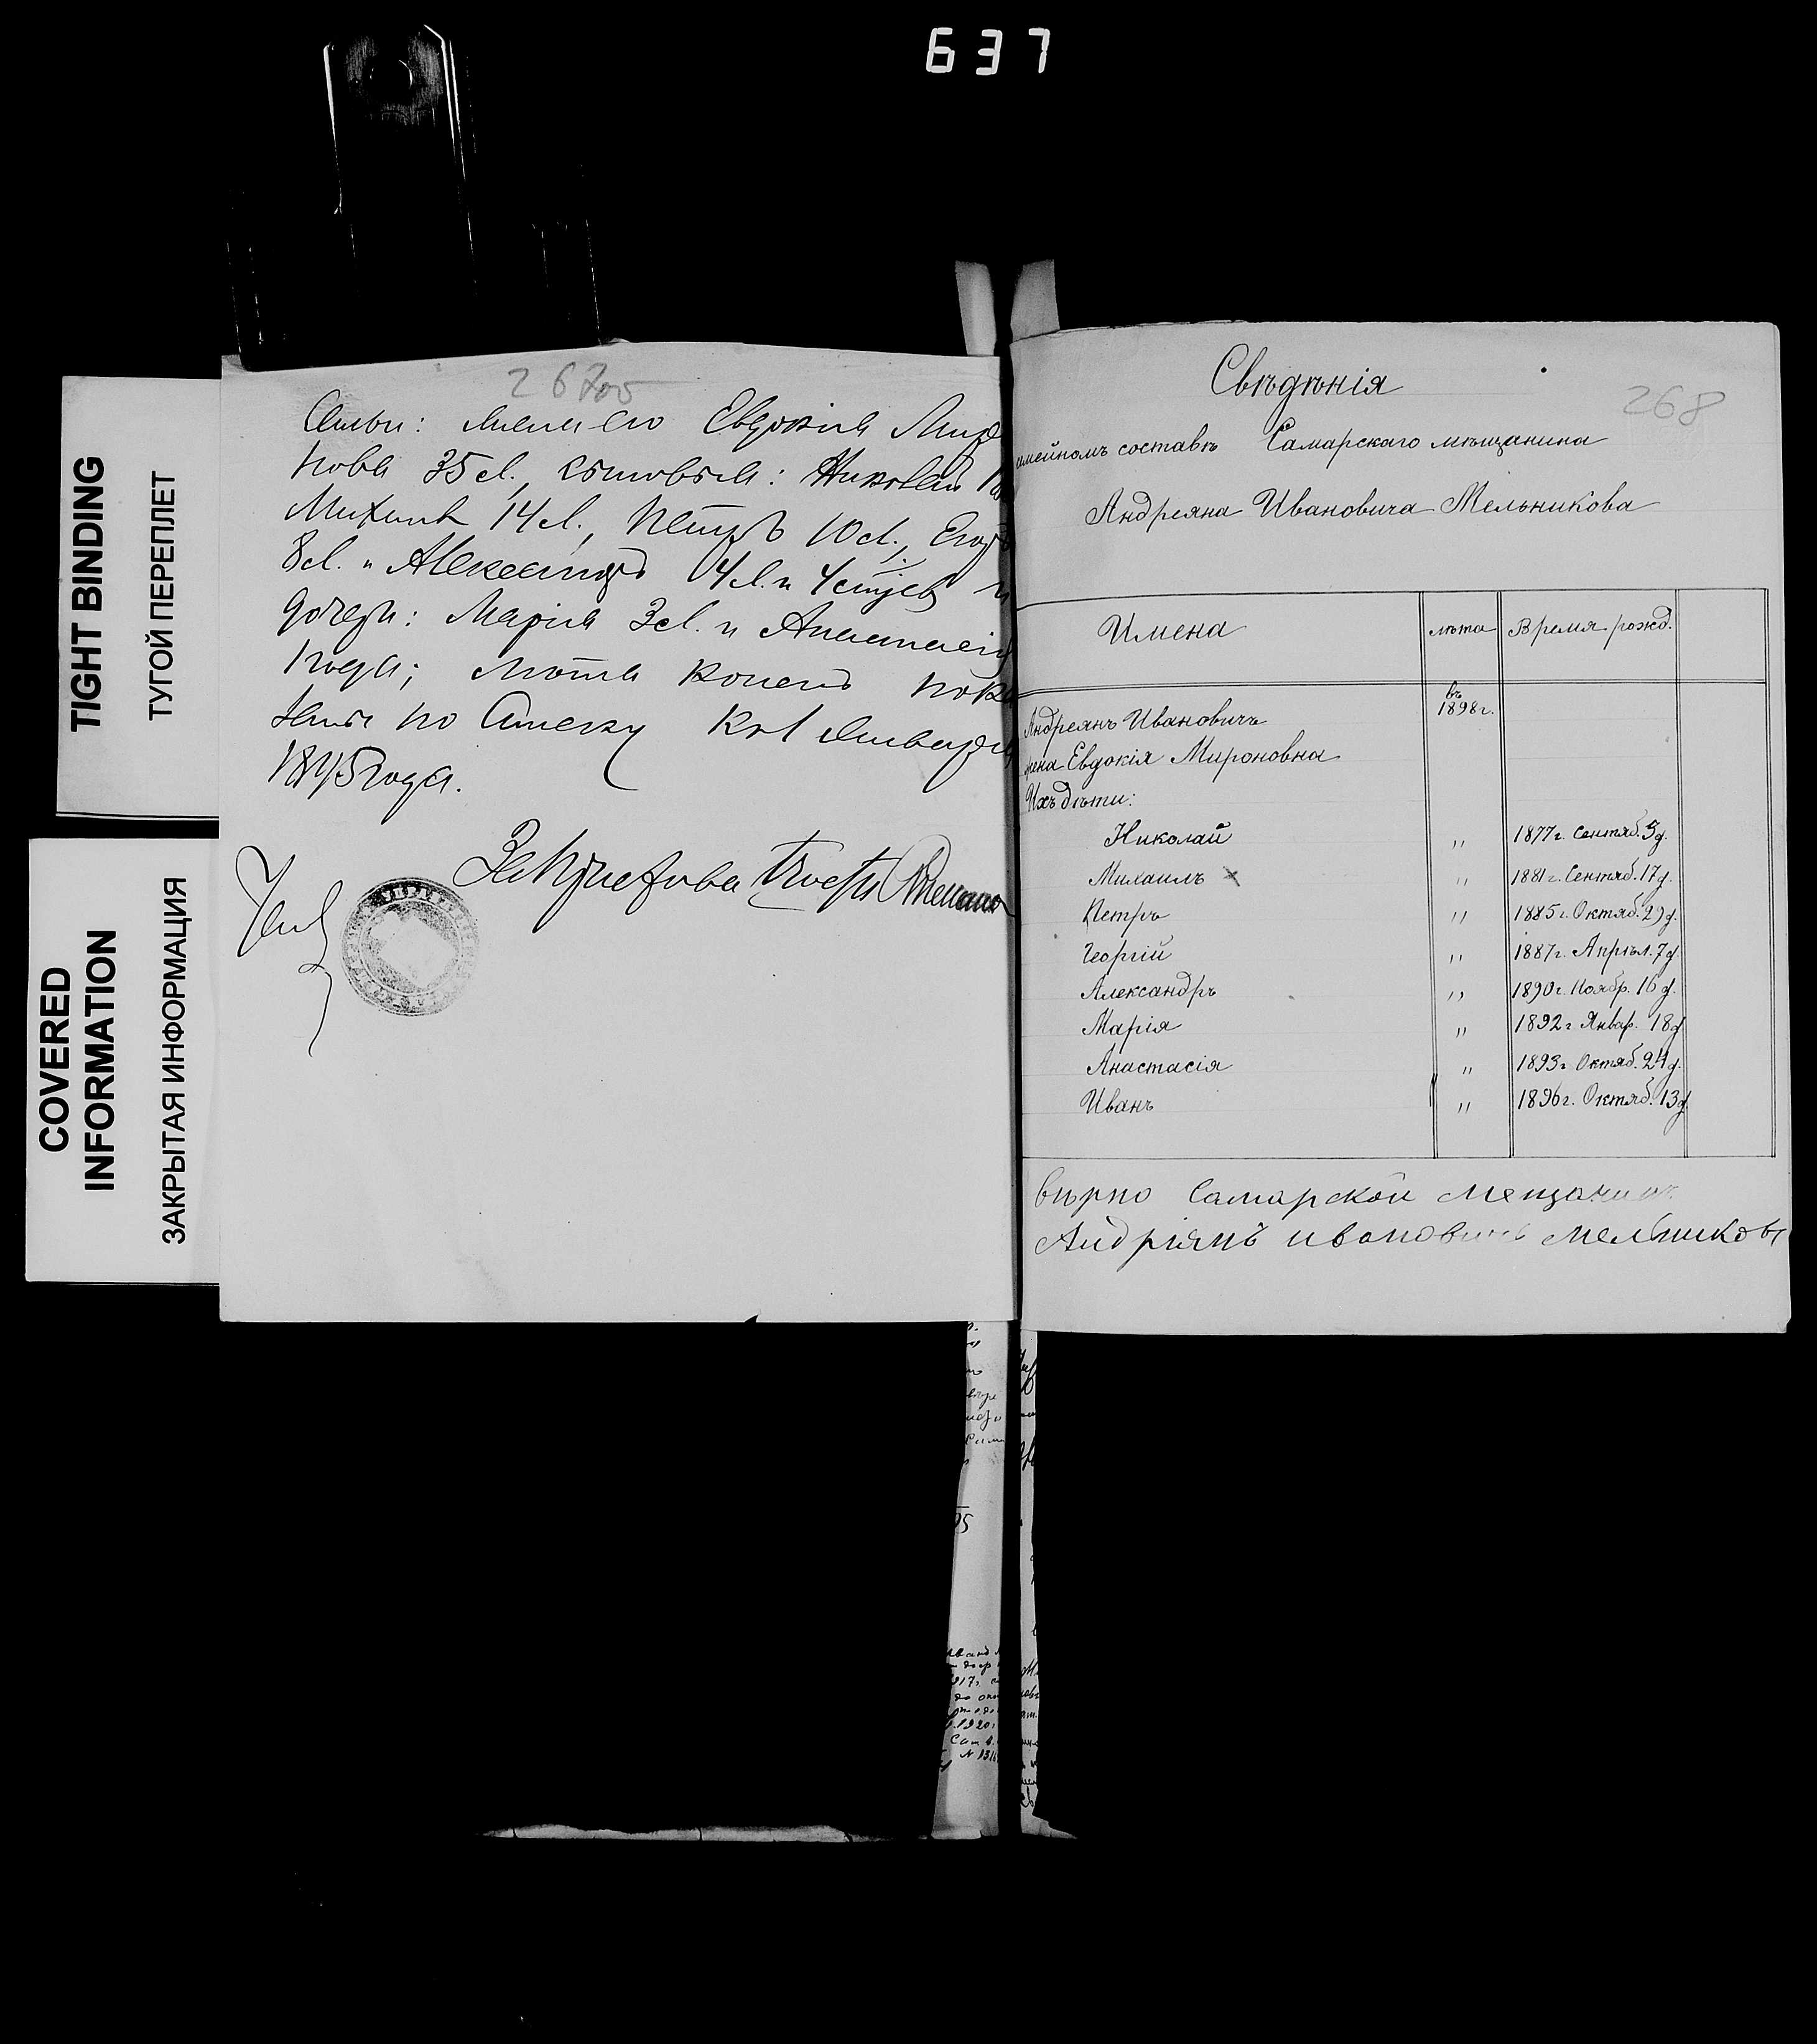 637
TIGHT BINDING
ТУГОЙ ПЕРЕПЛЕТ
COVERED
INFORMATION
ЗАКРЫТАЯ ИНФОРМАЦИЯ
267об
жена его Евдокія Миро
нова 35 л., сыновья: Николай
Михаилъ 14 л., Петръ 10 л., Егоръ
8 л. и Александръ 4 л. и
дочери: Марія 3 л. и Анастасія
1 года; лѣта коимъ пока
заны по списку къ 1 Января
1895 года.
268
Свѣдѣнія
семейномъ составѣ Самарскаго мѣщанина
Андреяна Ивановича Мельникова
Имена лѣта Время рожд.
въ
1898 г.
Андреянъ Ивановичъ
жена Евдокія Мироновна
Ихъ дѣти:
Николай " 1877 г. Сентяб. 5 д.
Михаилъ × " 1881 г. Сентяб. 17 д.
Петръ " 1885 г. Октяб. 29 д.
Георгій " 1887 г. Апрѣл. 7 д.
Александръ " 1890 г. Ноябр. 16 д.
Марія " 1892 г. Январ. 18 д.
Анастасія " 1893 г. Октяб. 24 д.
Иванъ " 1896 г. Октяб. 13 д.
вѣрно Самарской мещанинъ
Андріянъ ивановичъ мельниковъ